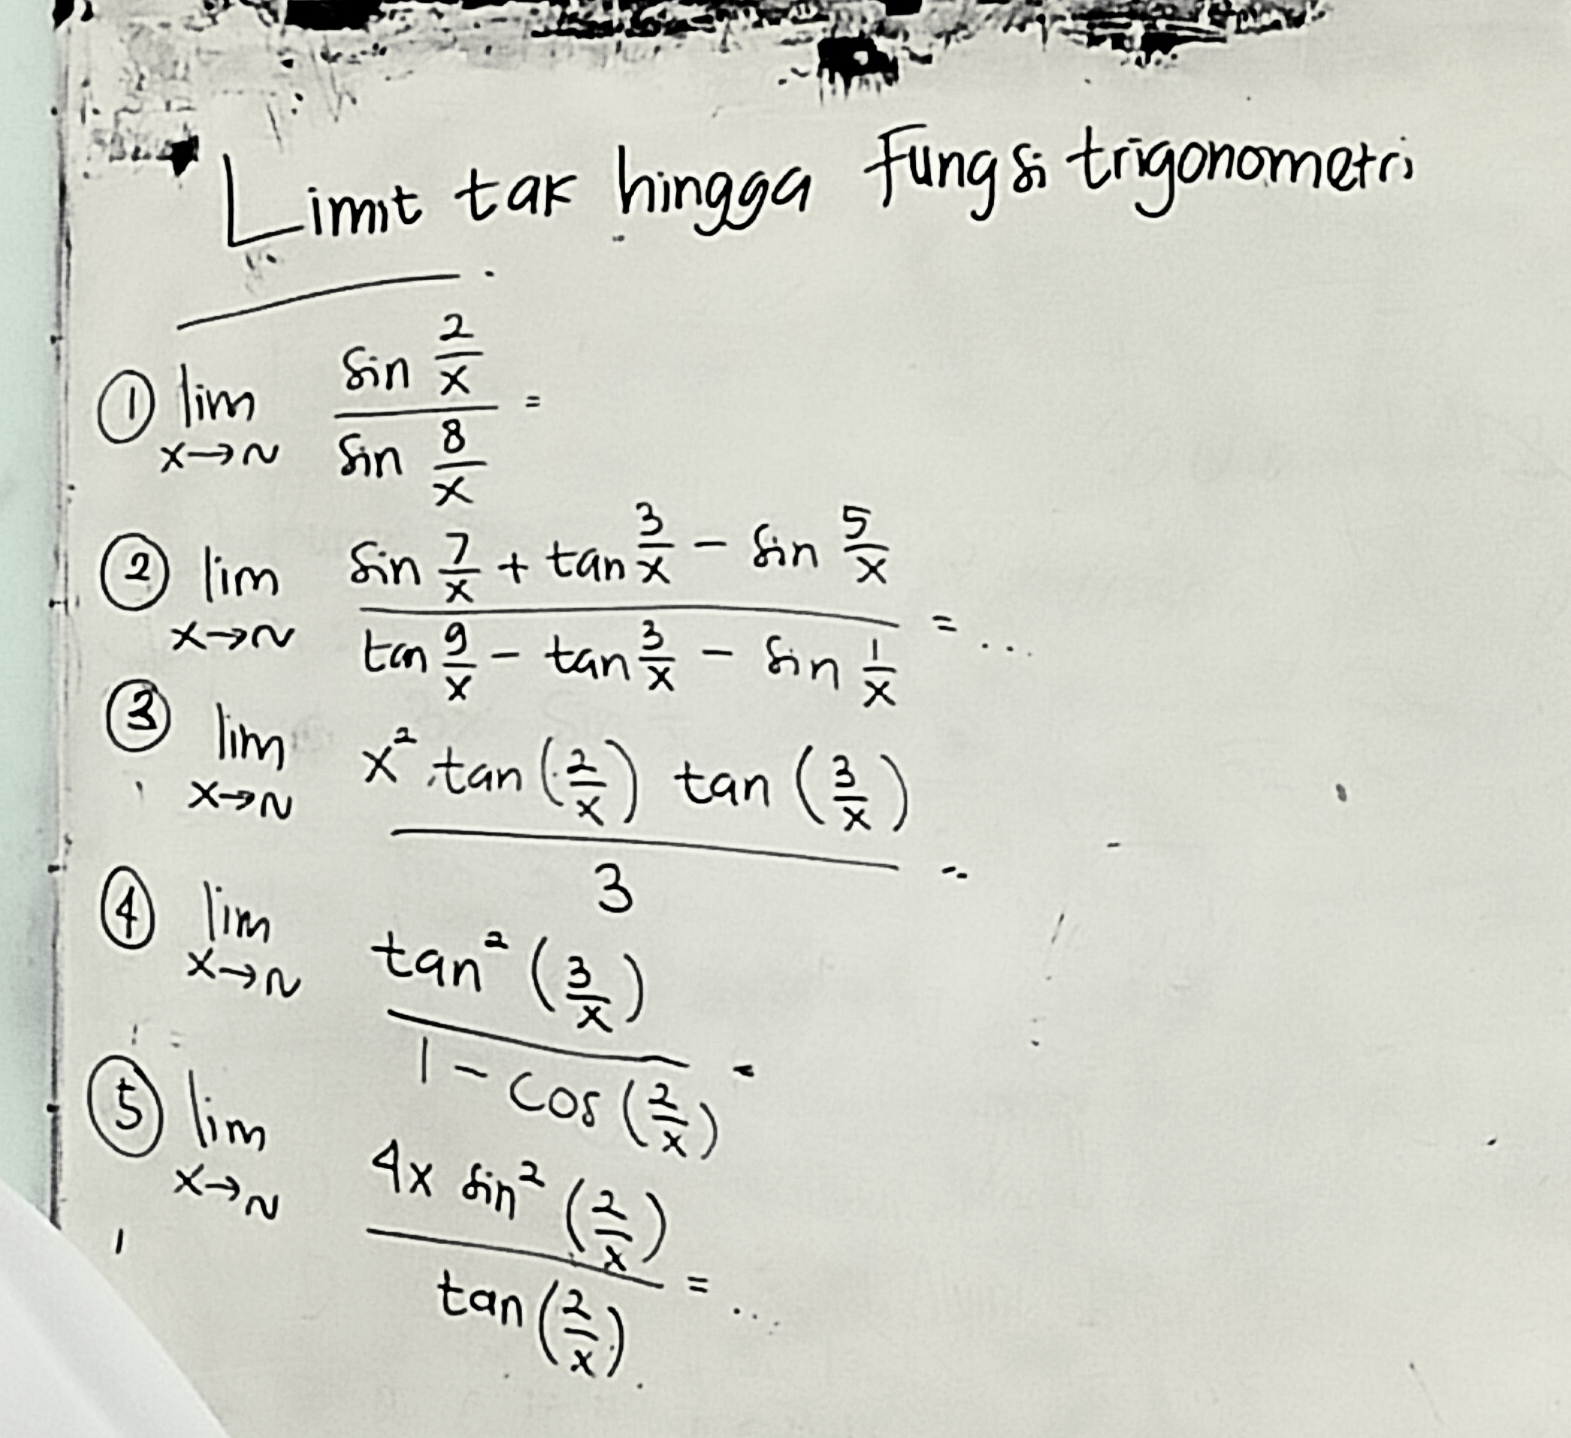 Limit tak hingga fungsi trigonometri
① lim x→~ sin 2/x / sin 8/x =
② lim x→~ sin 7/x + tan 3/x - sin 5/x / tan 9/x - tan 3/x - sin 1/x = ...
③ lim x→~ x² tan (2/x) tan (3/x) / 3 ..
④ lim x→~ tan² (3/x) / 1 - cos (2/x) =
⑤ lim x→~ 4x sin² (2/x) / tan (2/x) = ...